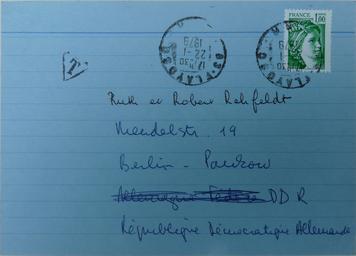 FRANCE
1,00
17 H 30
22-1
1979
83 FLAYOSC
T
Ruth et Robert Rehfeldt
Mendelstr. 19
Berlin - Pankow
Allemagne Fédérale DDR
République Démocratique Allemande